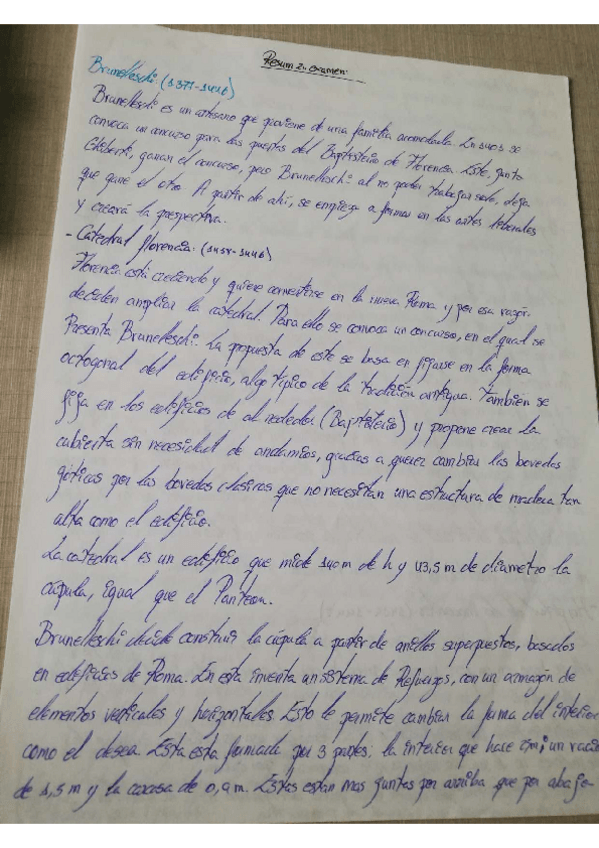 Resum 2n examen:
Brunelleschi (1377-1446)
Brunelleschi es un artesano que proviene de una familia acomodada. En 1403 se
convoca un concurso para las puertas del Baptisterio de Florencia. Este, junto
Ghiberti, ganan el concurso, pero Brunelleschi al no poder trabajar solo, deja
que gane el otro. A partir de ahí, se empieza a formar en las artes liberales
y creará la perspectiva.
- Catedral florencia: (1438-1446)
Florencia está creciendo y quiere convertirse en la nueva Roma y por esa razón
deciden ampliar la catedral. Para ello se convoca un concurso, en el qual se
Presenta Brunelleschi. La propuesta de este se basa en fijarse en la forma
octogonal del edificio, algo típico de la tradición antigua. También se
fija en los edificios de al rededor (Baptisterio) y propone crear la
cubierta sin necesidad de andamios, gracias a querer cambiar las bovedas
góticas por las bovedas clasicas que no necesitan una estructura de madera tan
alta como el edificio.
La catedral es un edificio que mide 140m de h y 43,5 m de diametro la
cúpula, igual que el Panteon.
Brunelleschi decide construir la cúpula a partir de anillos superpuestos, basados
en edificios de Roma. En esta inventa un sistema de Refuerzos, con un armagón de
elementos verticales y horizontales. Esto le permite cambiar la forma del interior
como el desea. Esta esta formada por 3 partes: la interior que hace 2m; un vacio
de 1,5 m y la carcasa de 0,9 m. Estas estan mas juntas por arriba que por abajo.